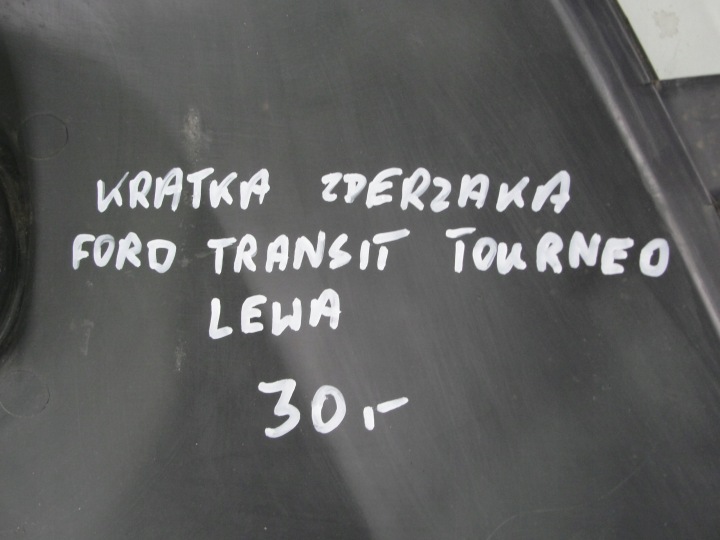 KRATKA ZDERZAKA
FORD TRANSIT TOURNEO
LEWA
30,-